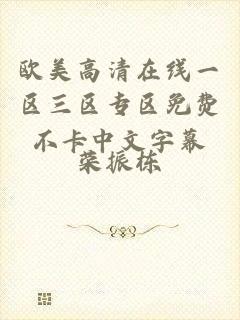 欧美高清在线一
区三区专区免费
不卡中文字幕
荣振栋